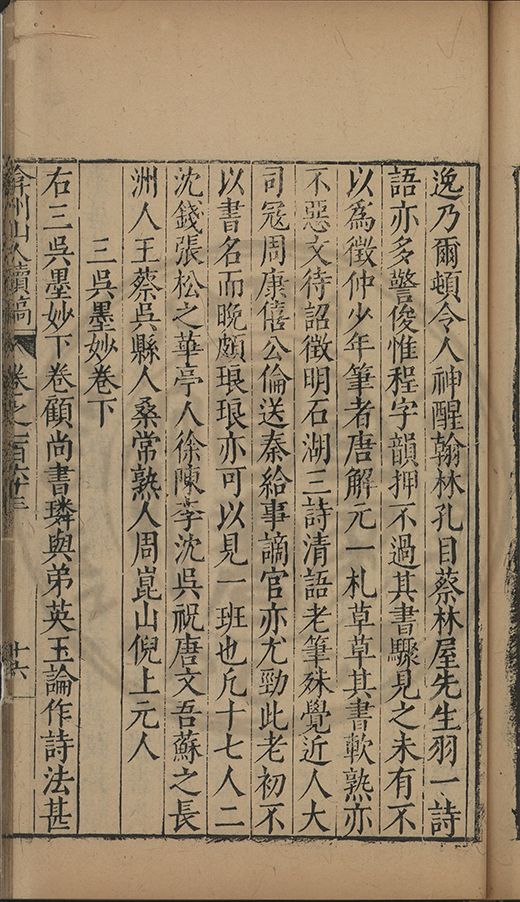 逸乃爾頓令人神醒翰林孔目蔡林屋先生羽一詩
語亦多警俊惟程字韻押不過其書驟見之未有不
以爲徵仲少年筆者唐解元一札草草其書軟熟亦
不惡文待詔徵明石湖三詩清語老筆殊覺近人大
司冦周康僖公倫送秦給事謫官亦尤勁此老初不
以書名而晚頗琅琅亦可以見一班也凢十七人二
沈錢張松之華亭人徐陳李沈吳祝唐文吾蘇之長
洲人王蔡吳縣人桑常熟人周崑山倪上元人
三吳墨妙卷下
右三吳墨妙下卷顧尚書璘與弟英玉論作詩法甚
弇州山人續稿 卷之一百六十三 十六